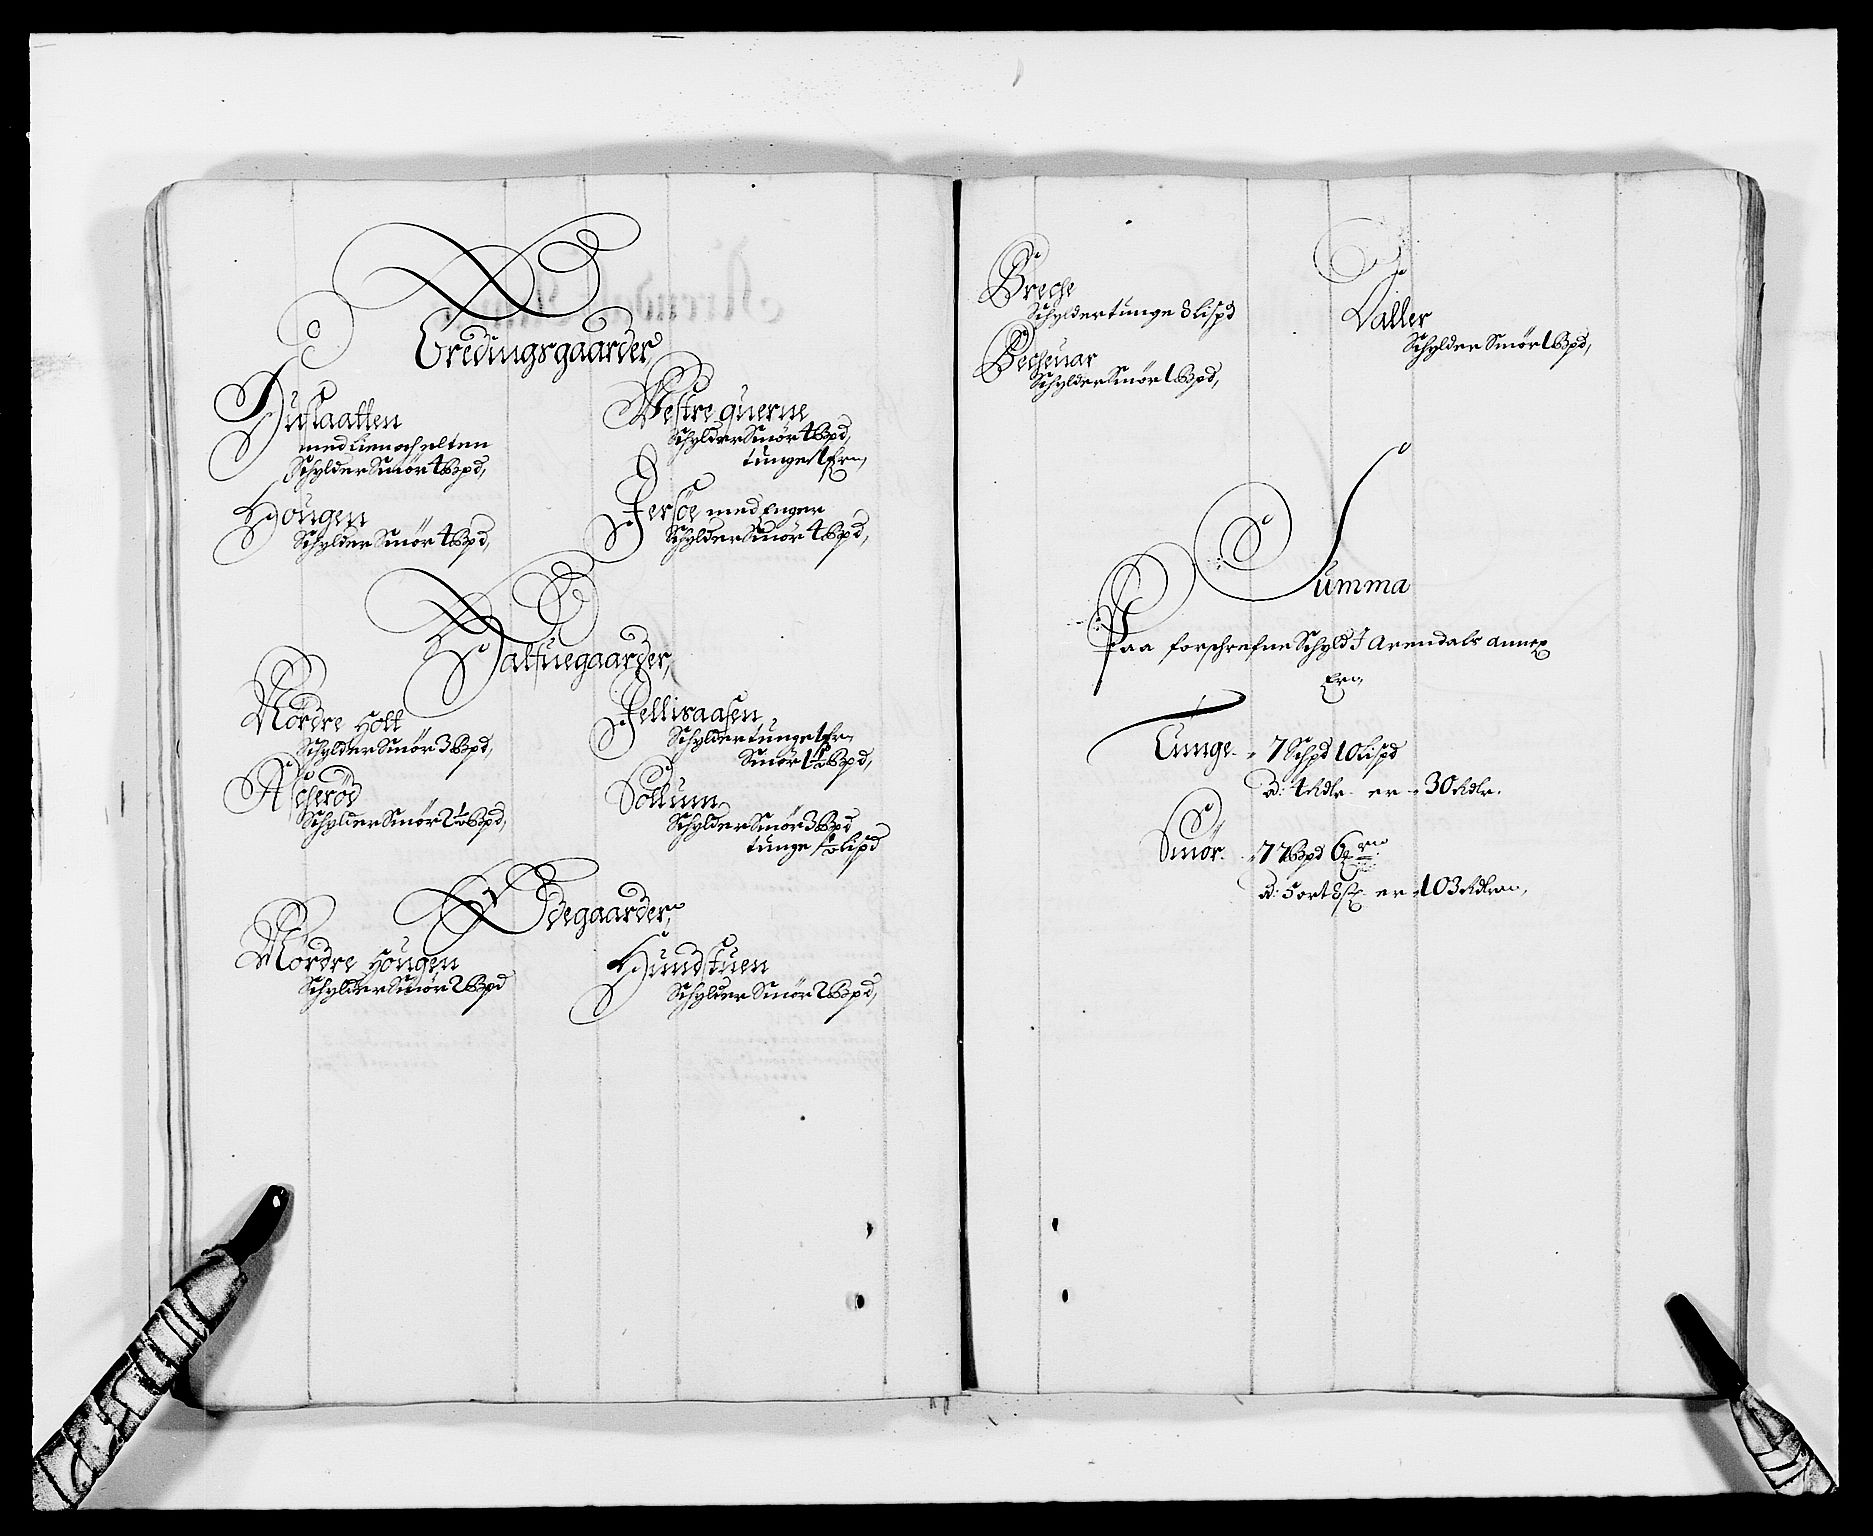 Tredingsgaarder
Huslaatten
med Lien och elten
Schylder Smör 4 Bpd,
Hougen
Schylder Smör 4 Bpd,
Westre querne
Schylder Smör 4 Bpd,
tunge 1 fr:
Jersöe med enger
Schylder Smör 4 Bpd,
Halfuegaarder,
Nordre Holt
Schylder Smör 3 Bpd,
Ascheröd
Schylder Smör 2½ Bpd,
Fellisaasen,
Schylder tunge 1 fr:
Smör 1½ Bpd,
Sollum
Schylder Smör 3 Bpd
tunge ½ Lispd
Ödegaarder,
Nordre Hougen
Schylder Smör 2 Bpd
Hundstuen
Schylder Smör 2 Bpd,
Breche
Schylder tunge 8 Lispd
Becheuar
Schylder Smör 1 Bpd,
Valler
Schylder Smör 1 Bpd,
Summa
Paa forschrefne Schyld I Arendals annex
Er:
Tunge - 7 Schpd 10 Lispd
a: 4 Rdlr - er - 30 Rdlr.
Smör - 77 Bpd 6
a: 5 ort 8 s er 103 Rdlr